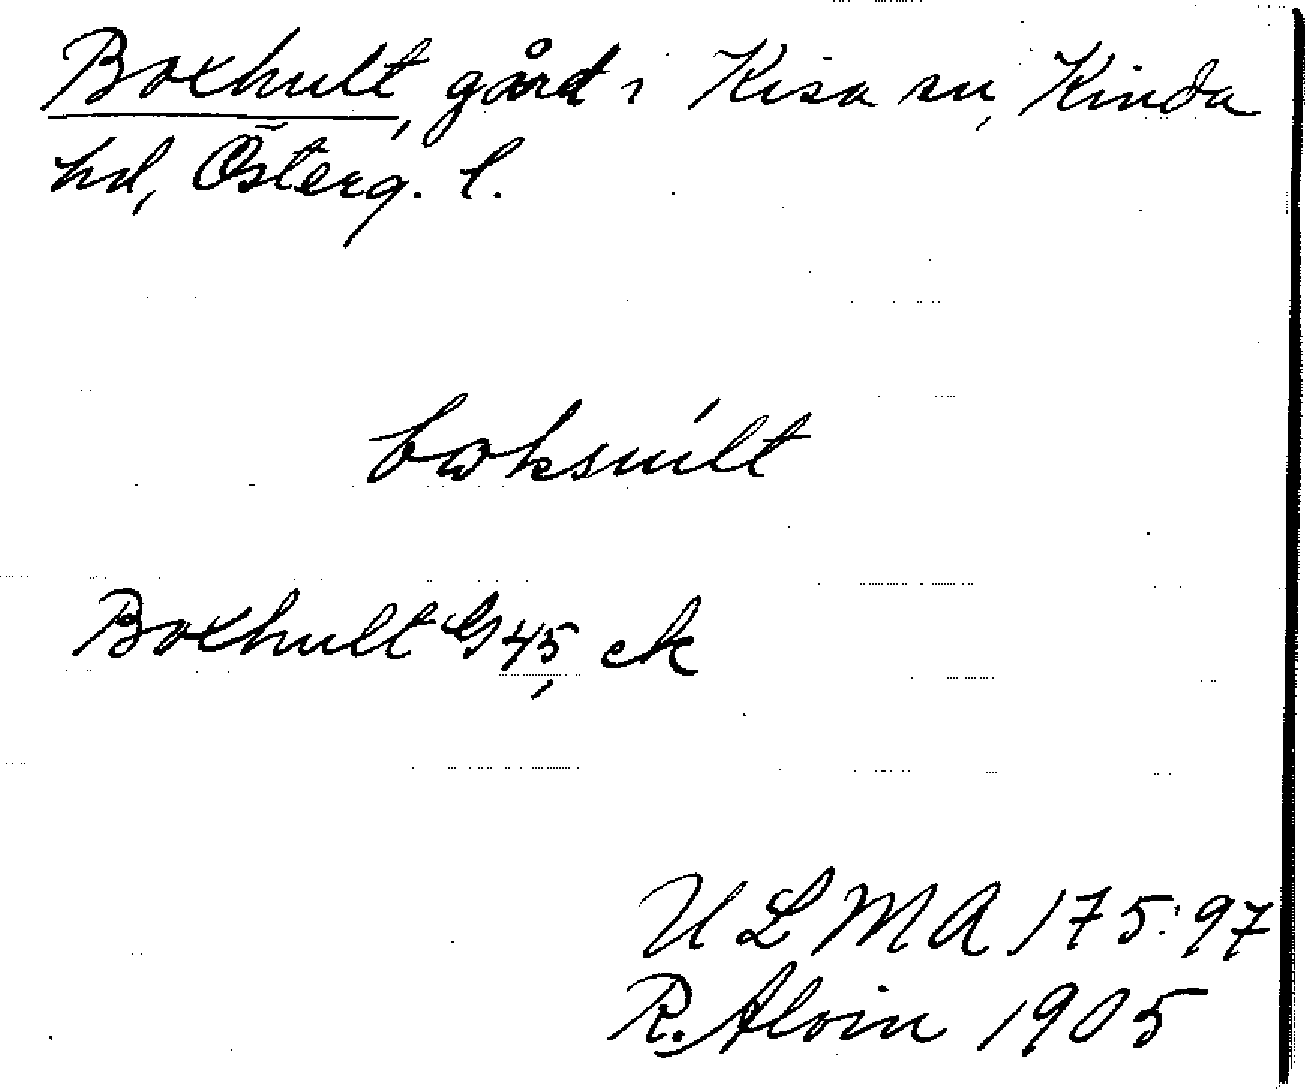 Boxhult, gård i Kisa sn, Kinda
hd, Österg. l.
boksúlt
Boxhult G 45, ek
ULMA 175:97
R. Alvin 1905